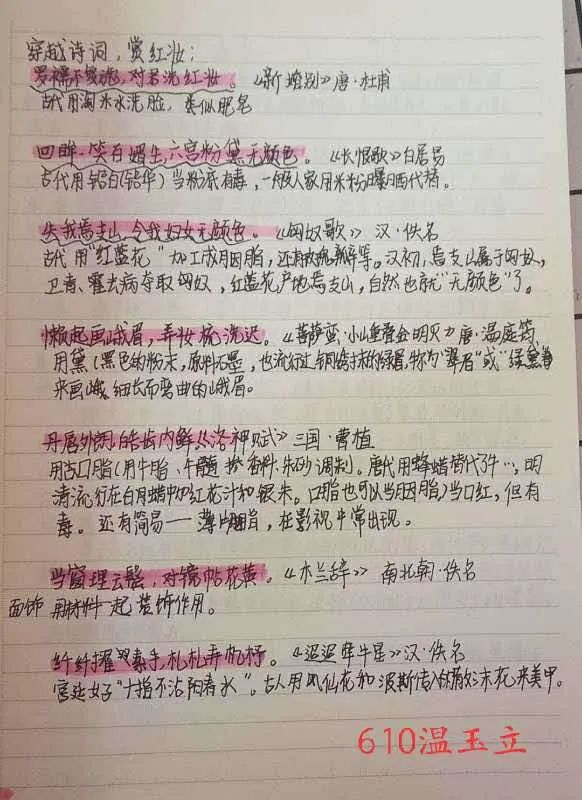 穿越诗词，赏红妆：
罗襦不复施，对君洗红妆。《新婚别》唐·杜甫
古代用淘米水洗脸，类似肥皂
回眸一笑百媚生，六宫粉黛无颜色。《长恨歌》白居易
古代用铅白(铅华)当粉底有毒，一般人家用米粉晒代替。
失我焉支山，令我妇女无颜色。《匈奴歌》汉·佚名
古代用"红蓝花"加工成胭脂，还有玫瑰等。汉初，焉支山属于匈奴，
卫青、霍去病夺取匈奴，红蓝花产地焉支山，自然也就"无颜色"了。
懒起画峨眉，弄妆梳洗迟。《菩萨蛮·小山重叠金明灭》唐·温庭筠
用黛(黑色的粉末，原料石墨，也流行过铜绿抹的绿眉，称为"翠眉"或"绿黛眉
来画峨.细长而弯曲的峨眉。
丹唇外朗，皓齿内鲜《洛神赋》三国·曹植
用古口脂(用牛脂、牛髓掺香料、朱砂调制。唐代用蜂蜡替代了牛…，明
清流行在白月蜡中加红花汁和银朱。口脂也可以当胭脂)当口红，但有
毒。还有简易——薄片胭脂，在影视中常出现。
当窗理云鬓，对镜帖花黄。《木兰辞》南北朝·佚名
面饰 用材料一起装饰作用。
纤纤擢双素手，札札弄机杼。《迢迢牵牛星》汉·佚名
宫廷女子"十指不沾阳春水"。古人用凤仙花和波斯传入的散沫花来美甲。
610温玉立